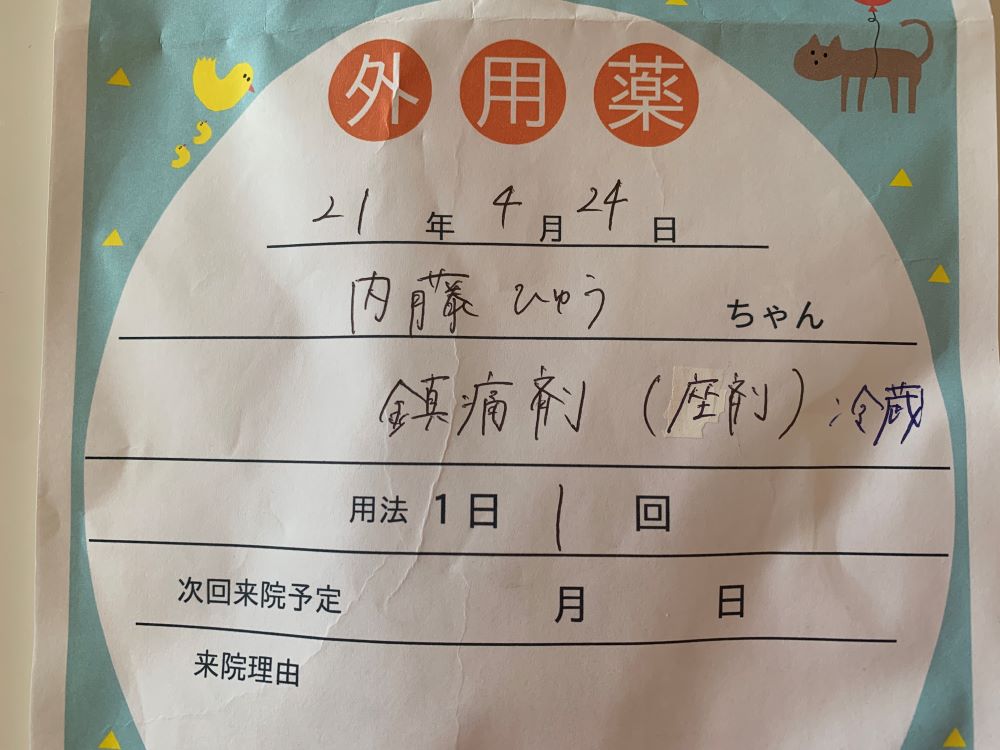 外用薬
21年4月24日
内藤 ひゅう ちゃん
鎮痛剤（座剤）冷蔵
用法 1日 1 回
次回来院予定 月 日
来院理由